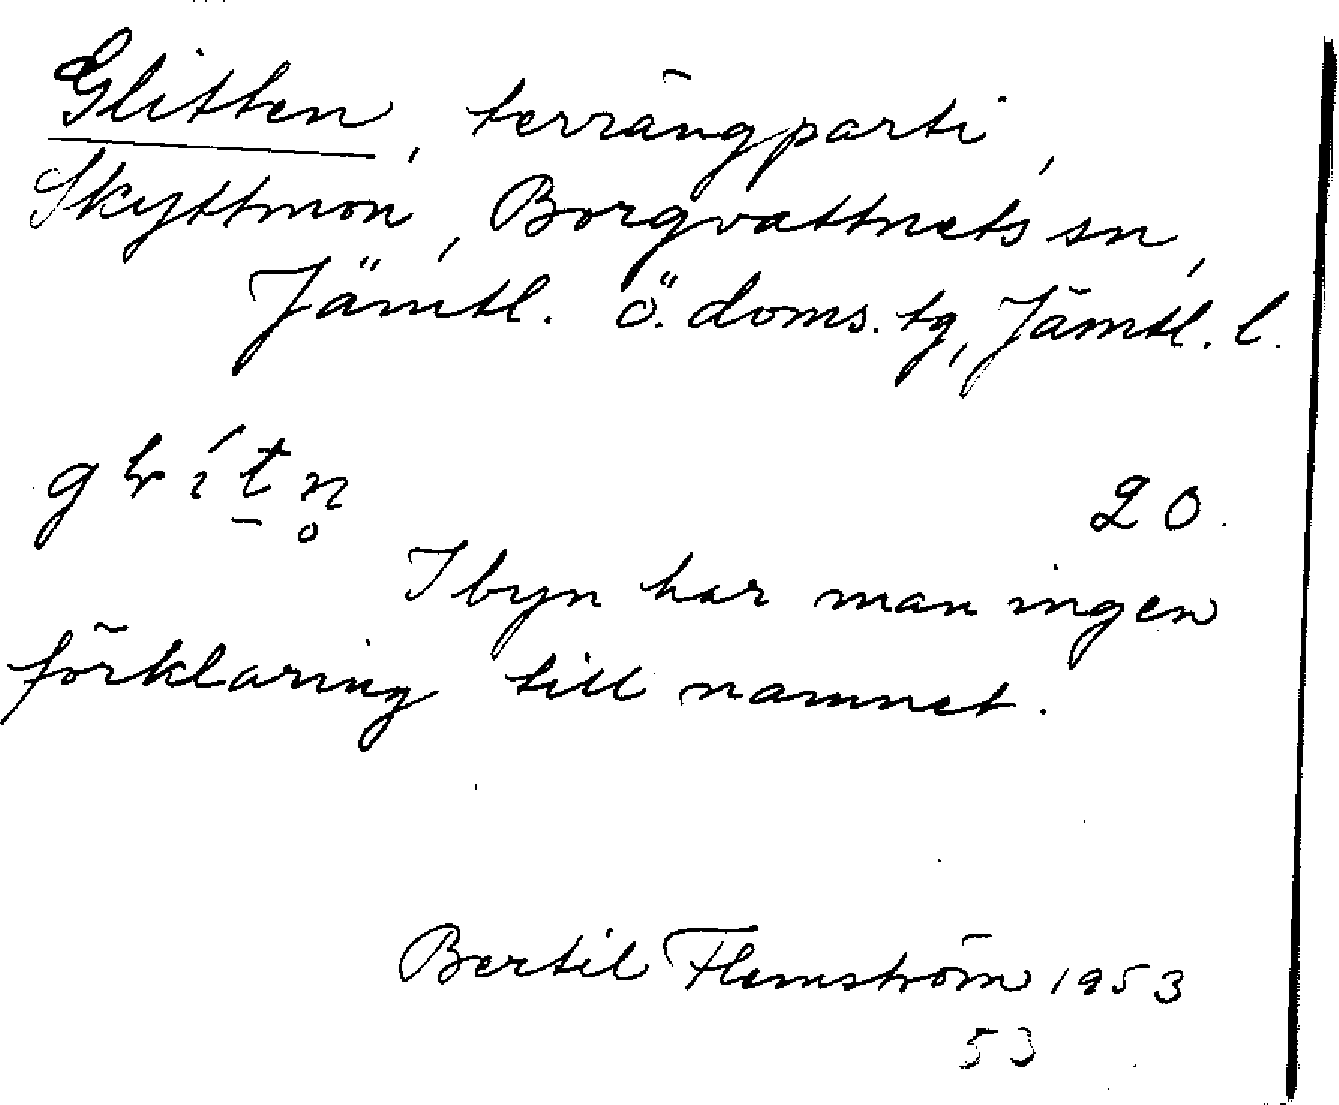 Glitten, terrängparti,
Skyttmon, Borgvattnets sn,
Jämtl. ö. doms. tg, Jämtl. l.
20.
I byn har man ingen
förklaring till namnet.
Bertil Flemström 1953
53